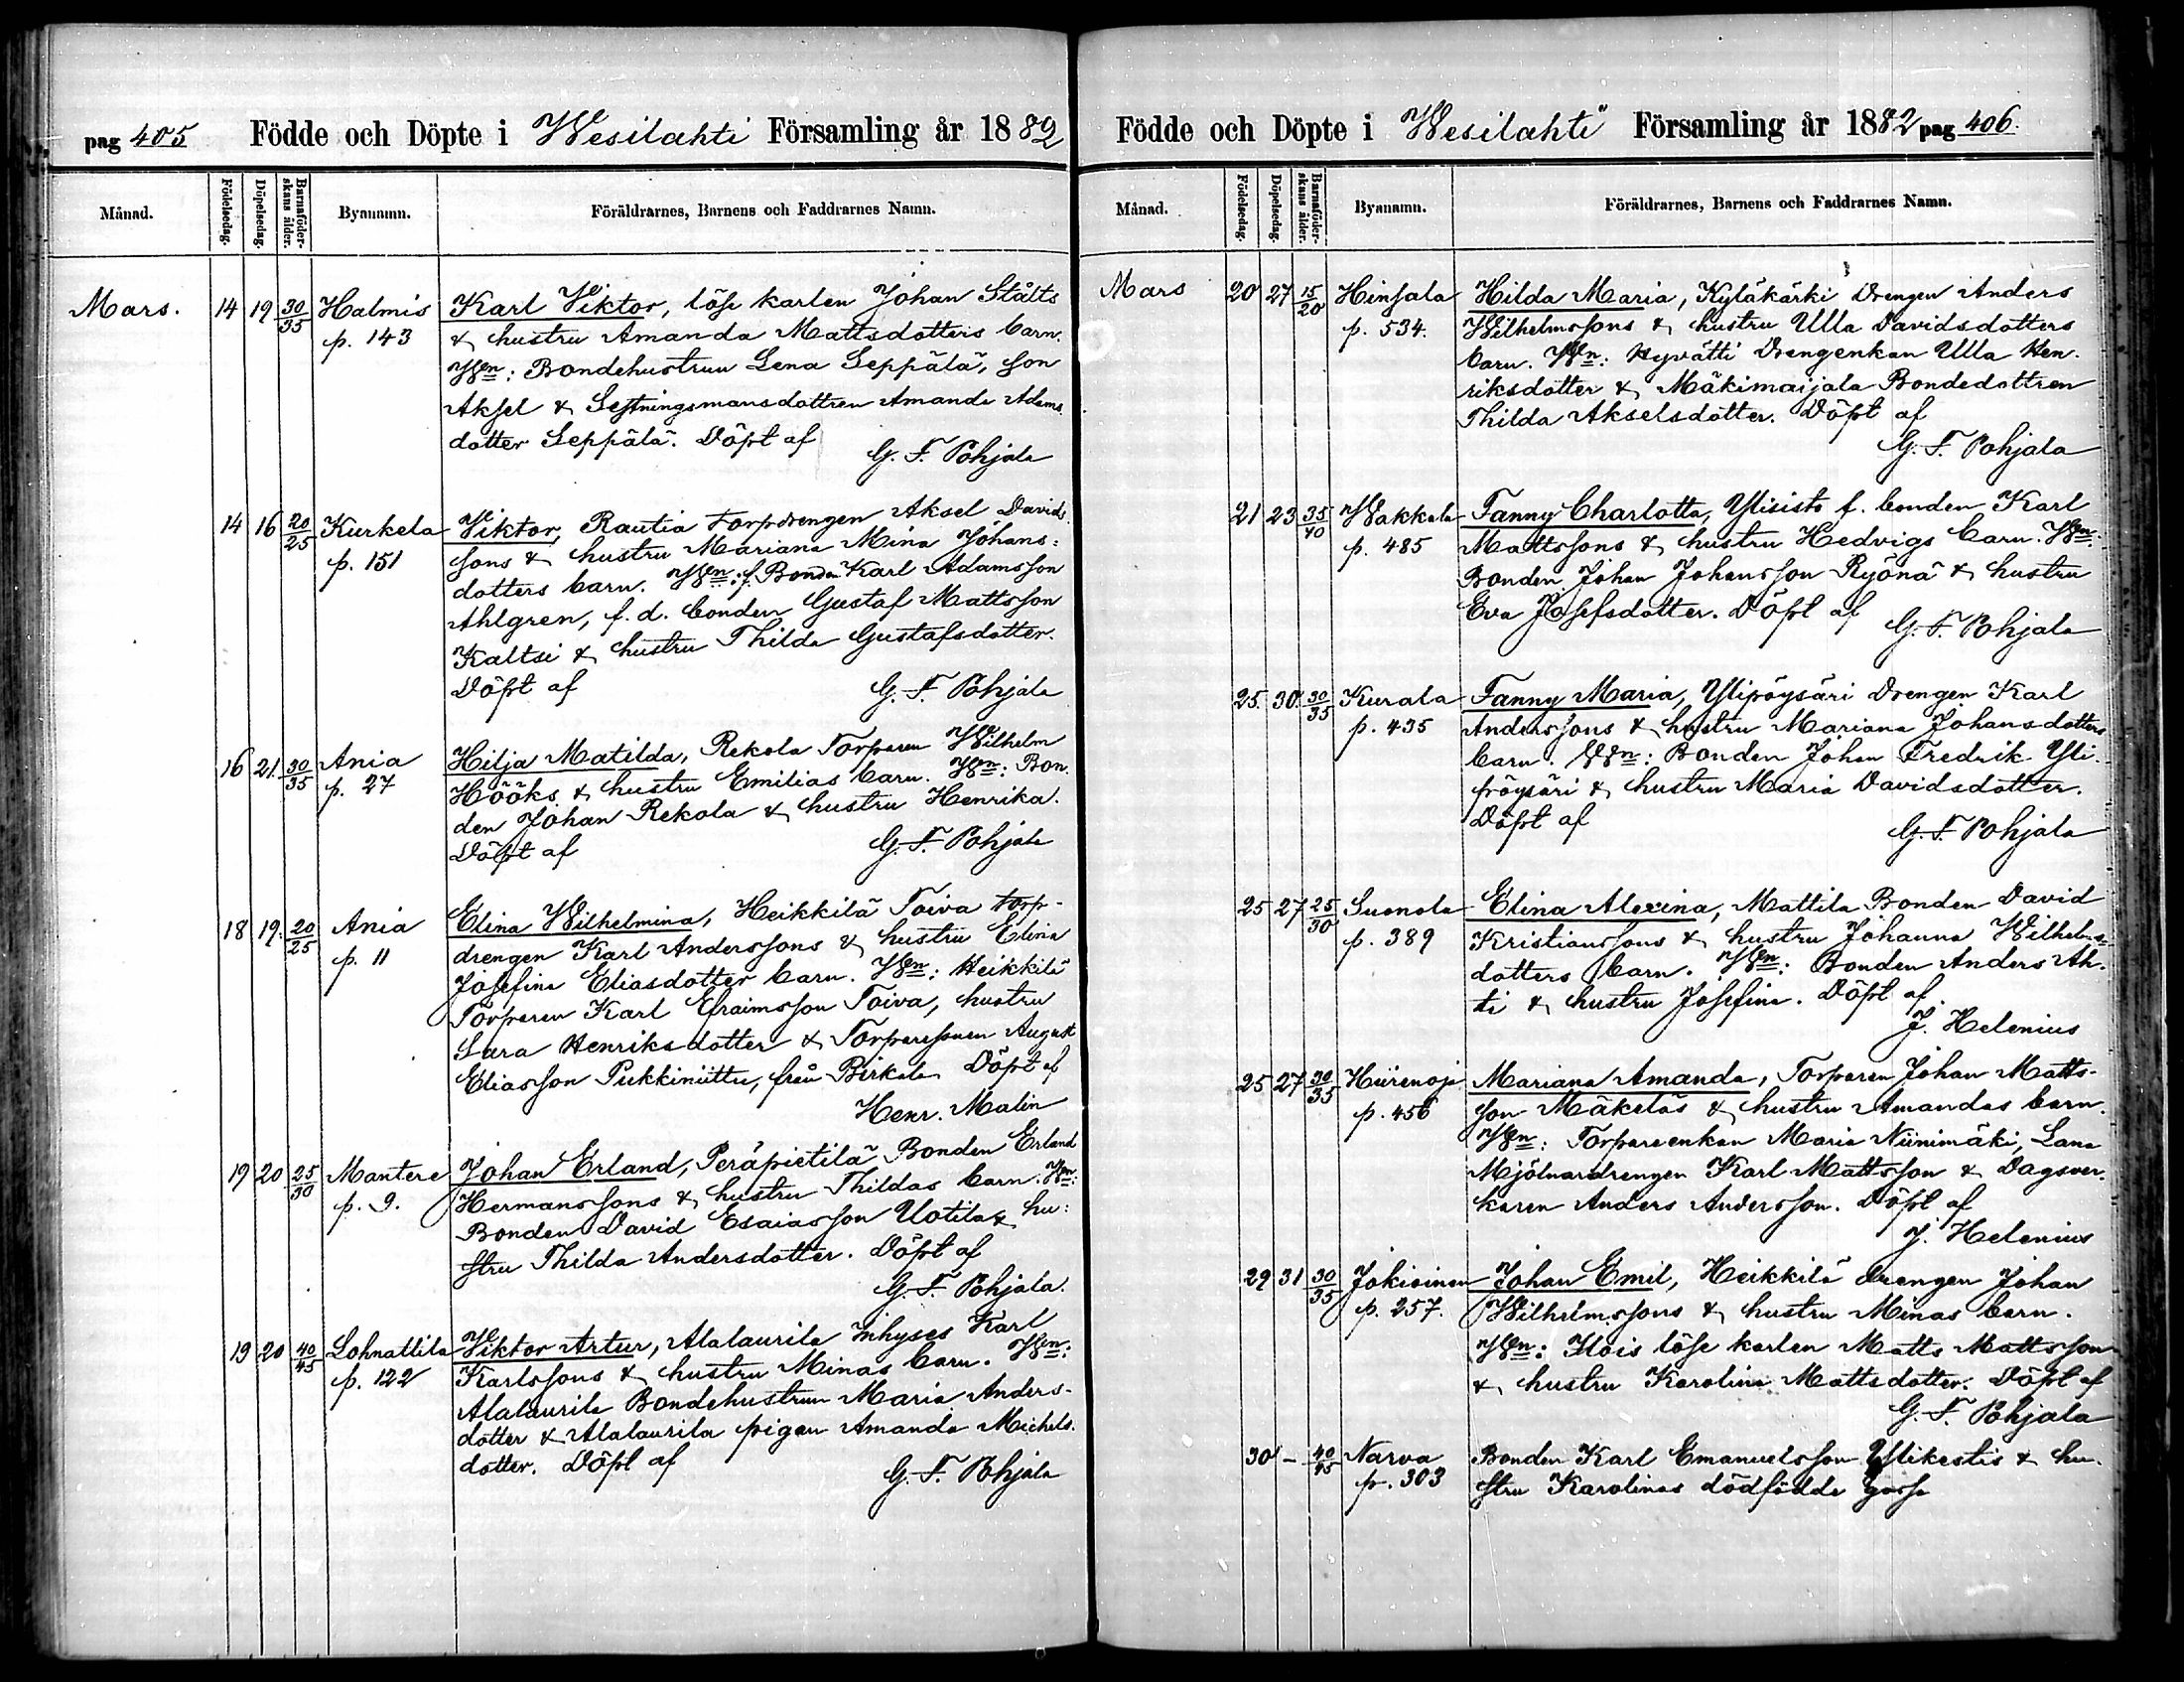 pag 405 Födde och Döpte i Wesilahti Församling år 1882
Månad. Födelsedag. Döpelsedag. Barnaföderskans ålder. Bynamn. Föräldrarnes, Barnens och Faddrarnes Namn.
Mars. 14 19 30/35 Halmis Karl Viktor, löse karlen Johan Stålts
p. 143 & hustru Amanda Mattsdotters barn.
Wn: Bondehustrun Lena Seppälä, son
Aksel & Sextningsmansdottren Amanda Adams
dotter Seppälä. Döpt af
G. F. Pohjala
14 16 20/25 Kurkela Viktor, Rautia torpdrengen Aksel Davids
p. 151 sons & hustru Mariana Mina Johans:
dotters barn. Wn: f. Bonden Karl Adamsson
Ahlgren, f. d. bonden Gustaf Mattsson
Kaltsi & hustru Thilda Gustafsdotter.
Döpt af G. F. Pohjala
16 21 30/35 Ania Hilja Matilda, Rekola Torparen Wilhelm
p. 27 Hööks & hustru Emilias barn. Wn: Bon.
den Johan Rekola & hustru Henrika.
Döpt af G. F. Pohjala
18 19. 20/25 Ania Elina Wilhelmina, Heikkilä Toiva torp-
p. 11 drengen Karl Anderssons & hustru Elina
Josefina Eliasdotter barn. Wn: Heikkilä
Torparen Karl Efraimsson Toiva, hustru
Sara Henriksdotter & Torparesonen August
Eliasson Pukkiniittu, från Birkala Döpt af
Henr. Malin
19 20 25/30 Mantere Johan Erland, Peräpietilä Bonden Erland
p. 9. Hermanssons & hustru Thildas barn. Wn:
Bonden David Esaiasson Uotila & hu:
stru Thilda Andersdotter. Döpt af
G. F. Pohjala.
19 20 40/45 Lohnattila Viktor Artur, Alalaurila Inhyses Karl
p. 122 Karlssons & hustru Minas barn. Wn:
Alalaurila Bondehustrun Maria Anders-
dotter & Alalaurila pigan Amanda Michels.
dotter. Döpt af
G. F. Pohjala
Födde och Döpte i Wesilahti Församling år 1882 pag 406.
Månad. Födelsedag. Döpelsedag. Barnaföderskans ålder. Bynamn. Föräldrarnes, Barnens och Faddrarnes Namn.
Mars 20 27 15/20 Hinsala Hilda Maria, Kyläkärki Drengen Anders
p. 534. Wilhelmssons & hustru Ulla Davidsdotters
barn. Wn: Hyvätti Drengenkan Ulla Hen.
riksdotter & Mäkimaijala Bondedottren
Thilda Akselsdotter. Döpt af
G. F. Pohjala
21 23 35/40 Wakkala Fanny Charlotta, Ylisisto f. bonden Karl
p. 485 Mattssons & hustru Hedvigs barn. Wn:
Bonden Johan Johansson Ryönä & hustru
Eva Josefsdotter. Döpt af
G. F. Pohjala
25. 30. 30/35 Kurala Fanny Maria, Ylipöysäri Drengen Karl
p. 435 Anderssons & hustru Mariana Johansdotters
barn. Wn: Bonden Johan Fredrik Yli.
pöysäri & hustru Maria Davidsdotter.
Döpt af
G. F. Pohjala
25 27 25/30 Suonola Elina Alexina, Mattila Bonden David
p. 389 Kristianssons & hustru Johanna Wilhelms
dotters barn. Wn: Bonden Anders Ah.
ti & hustru Josefina. Döpt af
J. Helenius
25 27 30/35 Hiirenoja Mariana Amanda, Torparen Johan Matts-
p. 456 son Mäkeläs & hustru Amandas barn.
Wn: Torpareenkan Maria Niinimäki, Lana
Mjölnardrengen Karl Mattsson & Dagsver.
karen Anders Andersson. Döpt af
J. Helenius
29 31 30/35 Jokioinen Johan Emil, Heikkilä drengen Johan
p. 257. Wilhelmssons & hustru Minas barn.
Wn: Hois löse karlen Matts Mattsson
& hustru Karolina Mattsdotter. Döpt af
G. F. Pohjala
30 - 40/45 Narva Bonden Karl Emanuelsson Ylikestis & hu.
p. 303 stru Karolinas dödfödda gosse